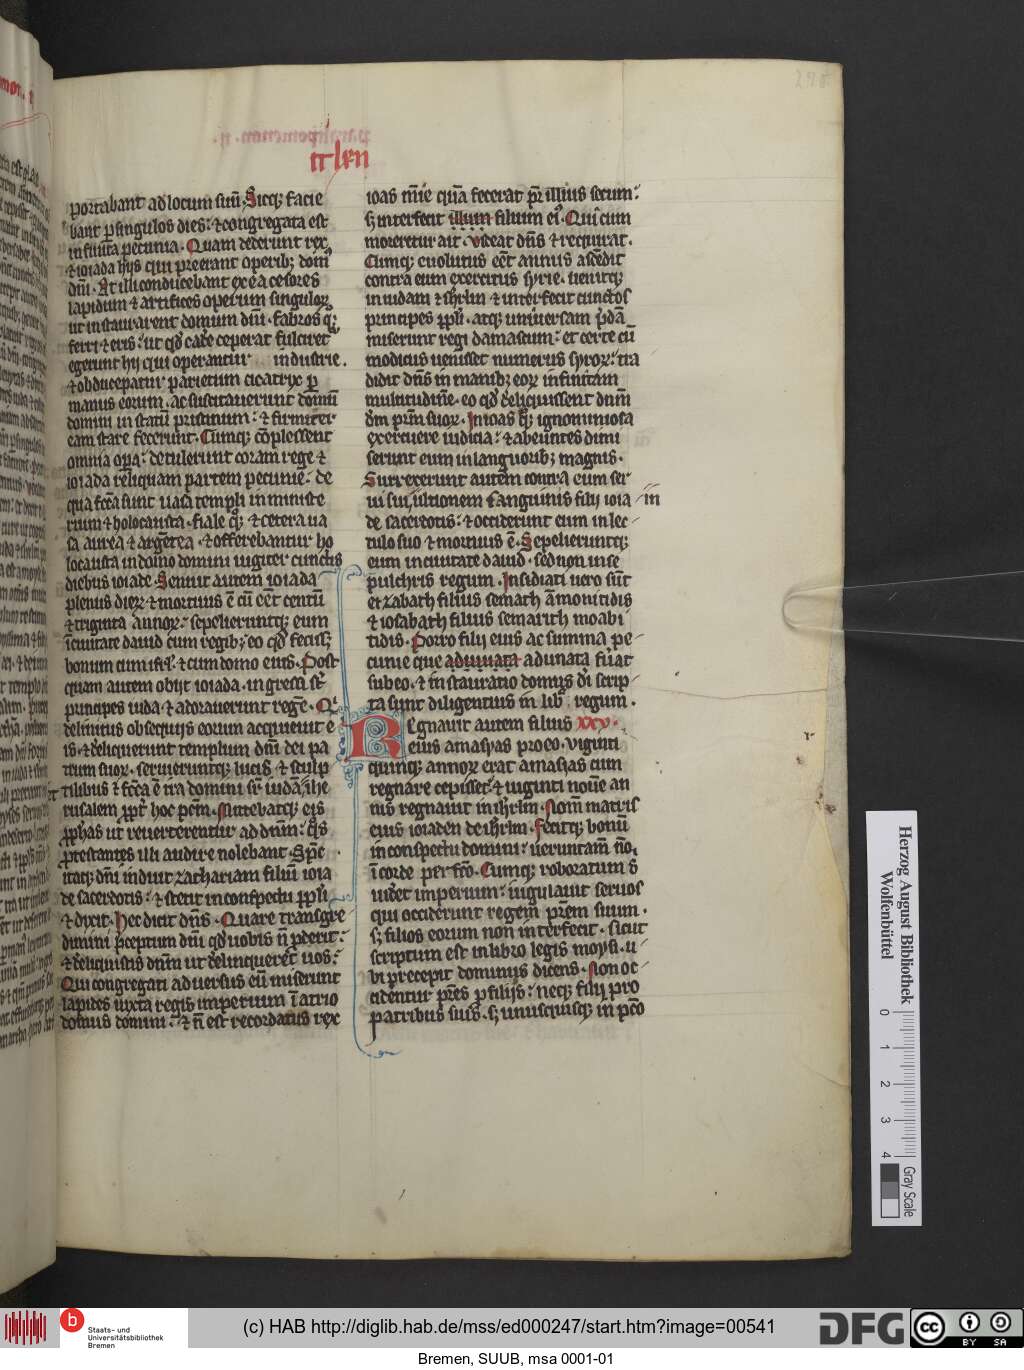 portabant ad locum suū. Sicq; facie
bant p singulos dies: et congregata est
infinita pecunia. Quam dederunt rex
et ioiada hijs qui preerant operib; dom⁹
dn̄i. At illi conducebant ex ea cesores
lapidum et artifices operum singuloꝝ
ut instaurarent domum dn̄i. fabros q̄;
ferri et eris: ut qd̄ cade ceperat fulciret
egerunt hij qui operantur industrie.
et obducepatur parietum cicatrix p
manus eorum. ac suscitauerunt domū
domini in statū pristinum: et firmiter
eam stare fecerunt. Cumq; cōplessent
omnia opa: detulerunt coram rege et
ioiada reliquam partem pecunie. de
qua fc̄a sunt uasa templi in ministe
rium et holocausta. fiale q̄; et cetera ua
sa aurea et argētea. et offerebantur ho
locausta in domo domini iugiter cunctis
diebus ioiade. Senuit autem ioiada
plenus dieꝝ et mortuus ē cū eēt centū
et triginta annoꝝ: sepelieruntq; eum
ī ciuitate dauid cum regib; eo qd̄ fecisꝫ
bonum cum isrl̄. et cum domo eius. Post
quam autem obijt ioiada. ingressi sūt
principes iuda et adorauerunt regē. Qi
delinitus obsequijs eorum acquieuit e
is. et dereliquerunt templum dn̄i dei pa
trum suoꝝ. seruieruntq; lucis et sculp
tilibus et fc̄a ē ira domini sr̄ iudā et ihe
rusalem ꝓpt̄ hoc pc̄m. Mittebatq; eis
ꝓphās ut reuerterentur ad dn̄m: q̄s
ꝓtestantes illi audire nolebant. Spc̄
itaq; dn̄i induit zachariam filiū ioia
de sacerdotis: et stetit in conspectu ppl̄i
et dixit. Hec dicit dn̄s. Quare transgre
dimini p̄ceptum dn̄i qd̄ uobis n̄ ꝓderit:
et dereliquistis dn̄m ut derelinqueret uos:
Qui congregati aduersus eū miserunt
lapides iuxta regis imperium ī atrio
domus domini: et n̄ est recordatus rex
ii len
ioas mīe quā fecerat pr̄ illius secum:
sꝫ interfecit illum filium ei⁹. Qui cum
moreretur ait. Videat dn̄s et requirat.
Cumq; euolutus eēt annus ascēdit
contra eum exercitus syrie. uenitq;
in iudam et ihrl̄m et interfecit cunctos
principes ppl̄i. atq; uniuersam p̄dā
miserunt regi damascum: et certe cū
modicus uenisset numerus syroꝝ: tra
didit dn̄s in manib; eoꝝ infinitam
multitudinē. eo qd̄ dereliquissent dn̄m
dm̄ prm̄ suoꝝ. In ioas q̄; ignominiosa
exercuere iudicia: et abeuntes dimi
serunt eum in languorib; magnis.
Surrexerunt autem contra eum ser
ui sui, ultionem sanguinis filij ioia in
de sacerdotis: et occiderunt eum in lec
tulo suo et mortuus ē. Sepelieruntq;
eum in ciuitate dauid. sed non in se
pulchris regum. Insidiati uero sūt
ei zabath filius semath āmonitidis
et iosabath filius semarith moabi
tidis. Porro filij eius ac summa pe
cunie que adiuuata adunata fuerat
sub eo. et instauratio domus dī scrip
ta sunt diligentius in lib̄ regum.
REgnauit autem filius XXV.
eius amasyas pro eo. viginti
quinq; annoꝝ erat amasias cum
regnare cepisset. et uiginti nouē an
nis regnauit in ihrl̄m. Nom̄ matris
eius ioiaden de ihrl̄m. Fecitq; bonū
in conspectu domini: ueruntam̄ nō
ī corde perfc̄o. Cumq; roboratum s̄
uidet imperium: iugulauit seruos
qui occiderunt regem prēm suum.
sꝫ filios eorum non interfecit. sicut
scriptum est in libro legis moysi. u
bi precepit dominus dicens. Non oc
cidentur prēs p filijs: neq; filij pro
patribus suis. sꝫ unusquisq; in pc̄o
Herzog August Bibliothek
Wolfenbüttel
0 1 2 3 4
Gray Scale
b Staats- und
Universitätsbibliothek
Bremen
(c) HAB http://diglib.hab.de/mss/ed000247/start.htm?image=00541
DFG
cc BY SA
Bremen, SUUB, msa 0001-01